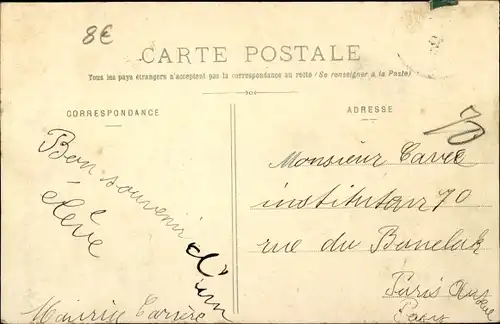 8€
CARTE POSTALE
Tous les pays étrangers n'acceptent pas la correspondance au recto (Se renseigner à la Poste)
CORRESPONDANCE
ADRESSE
Bon souvenir d'un
élève
Monsieur
70
rue du
Paris